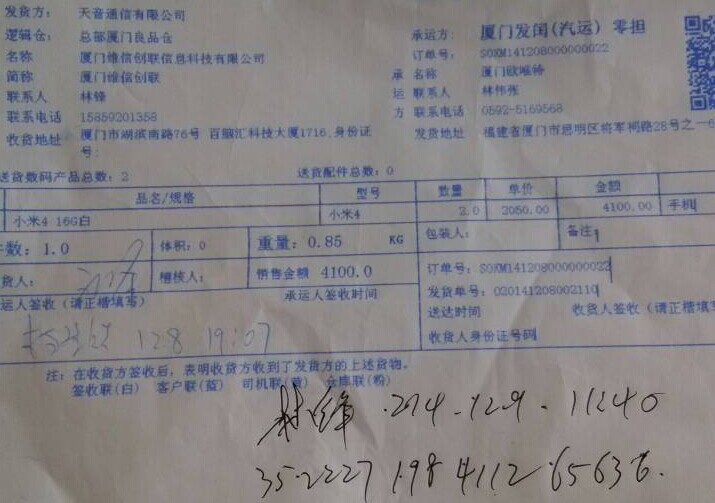 发货方： 天音通信有限公司
承运方： 厦门发闽(汽运) 零担
逻辑仓： 总部厦门良品仓
订单号： SOXM141208000000022
名称 厦门维信创联信息科技有限公司
承 名称 厦门欧唯特
简称 厦门维信创联
运 联系人 林伟张
联系人 林锋
方 联系电话 0592-5169568
联系电话 15859201358
发货地址 福建省厦门市思明区将军祠路28号之一6
收货地址 厦门市湖滨南路76号 百脑汇科技大厦1716.身份证号:
送货数码产品总数： 2 送货配件总数： 0
品名/规格 型号 数量 单价 金额
小米4 16G白 小米4 2.0 2050.00 4100.00 手机
件数： 1.0 体积： 0 重量： 0.85 KG 包装人： 备注：
货人： 稽核人： 销售金额 4100.0 订单号： SOXM141208000000022
运人签收（请正楷填写） 承运人签收时间 发货单号： 020141208002110
送达时间 收货人签收（请正楷填写
128 19:07 收货人身份证号码
注： 在收货方签收后，表明收货方收到了发货方的上述货物。
签收联(白) 客户联(蓝) 司机联(黄) 仓库联(粉)
林锋